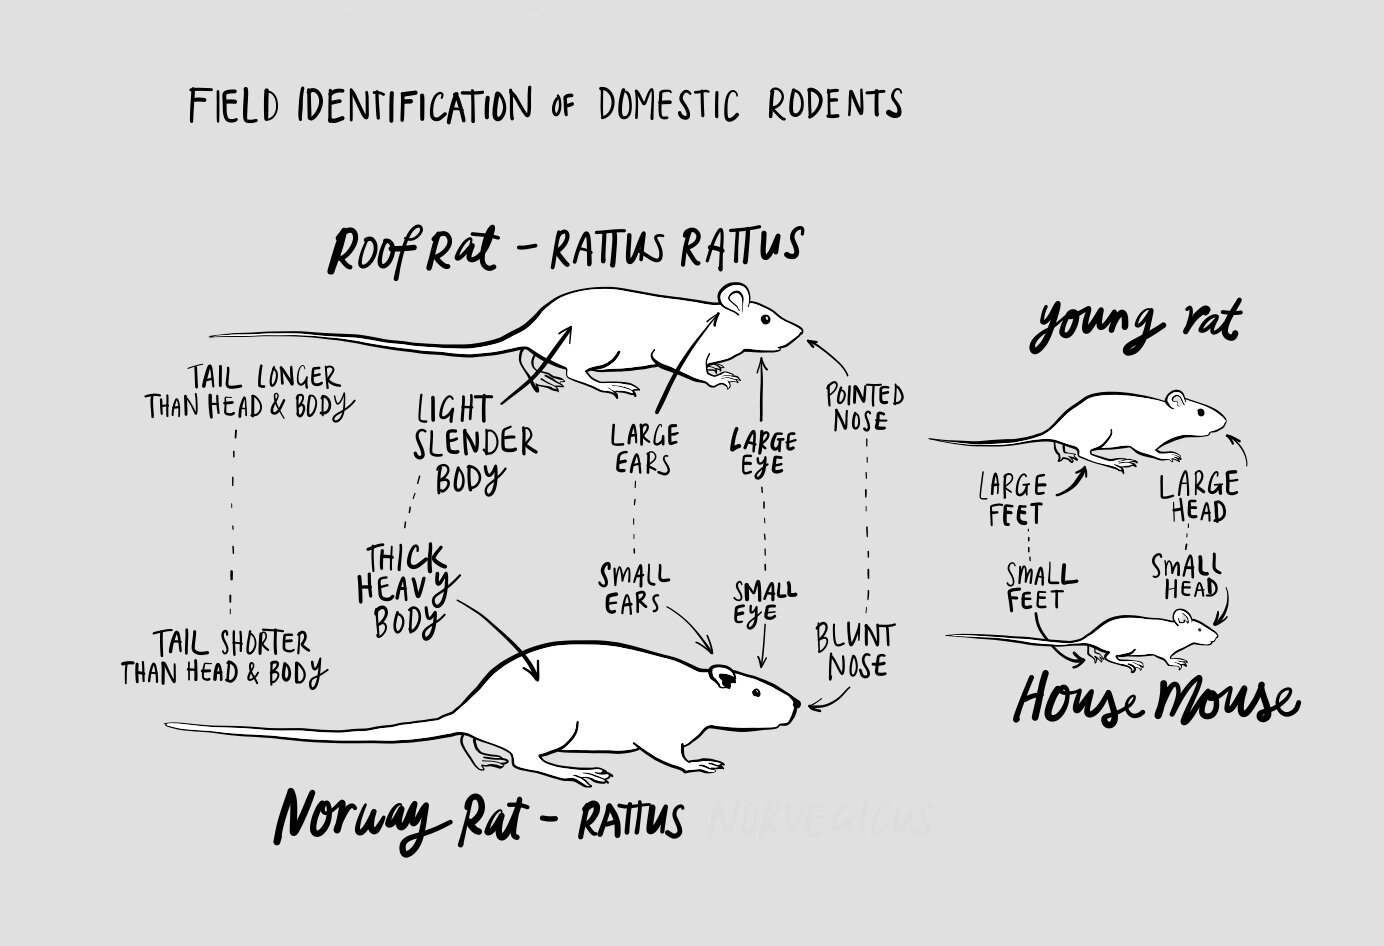 FIELD IDENTIFICATION OF DOMESTIC RODENTS
Roof Rat - RATTUS RATTUS
TAIL LONGER
THAN HEAD & BODY
LIGHT
SLENDER
BODY
LARGE
EARS
LARGE
EYE
POINTED
NOSE
TAIL SHORTER
THAN HEAD & BODY
THICK
HEAVY
BODY
SMALL
EARS
SMALL
EYE
BLUNT
NOSE
Norway Rat - RATTUS NORVEGICUS
young rat
LARGE
FEET
LARGE
HEAD
SMALL
FEET
SMALL
HEAD
House Mouse